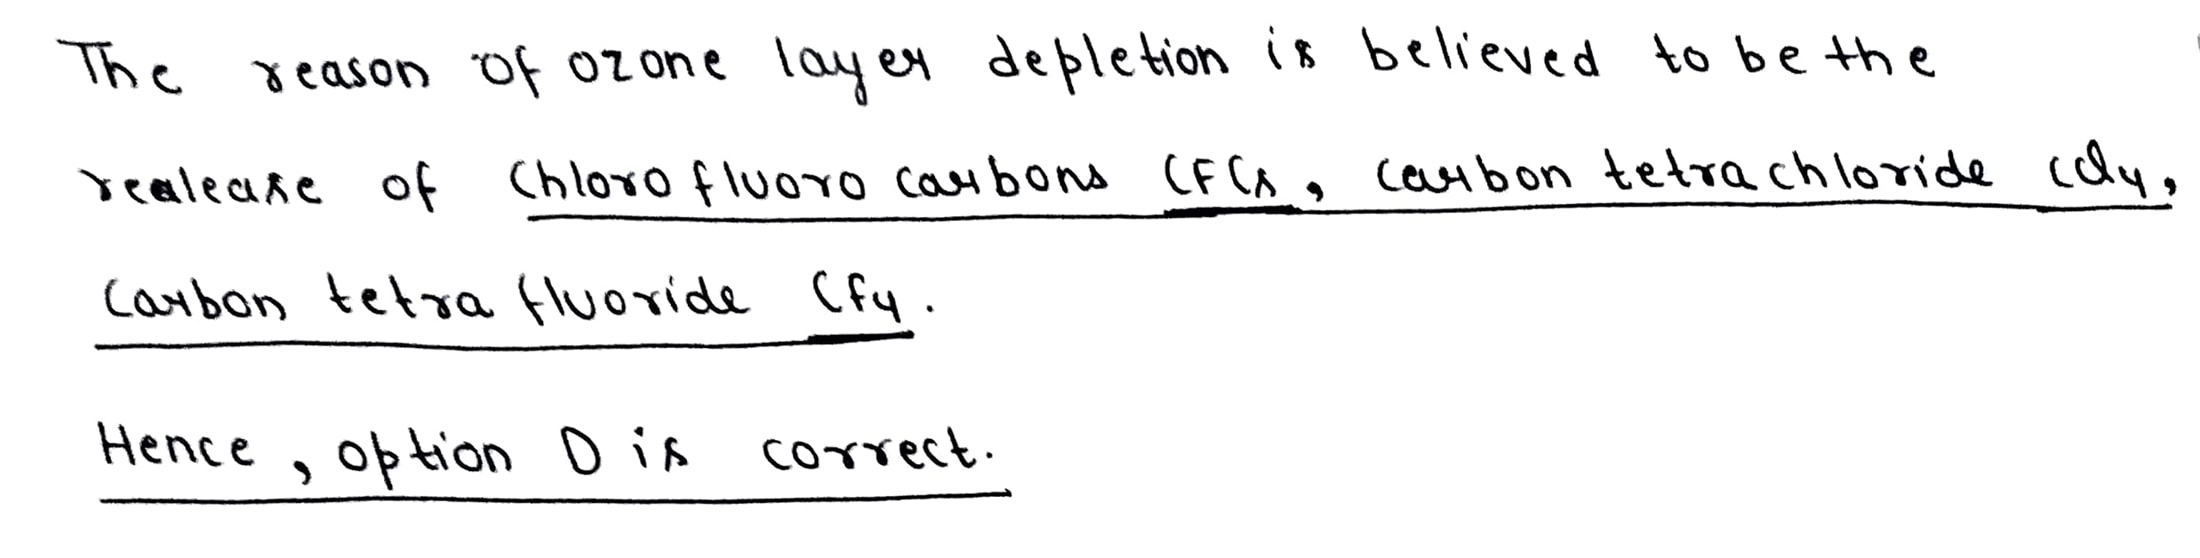 The reason of ozone layer depletion is believed to be the
realease of Chloro fluoro carbons CFCs, carbon tetrachloride ccl4,
Carbon tetra fluoride Cf4.
Hence, option D is correct.